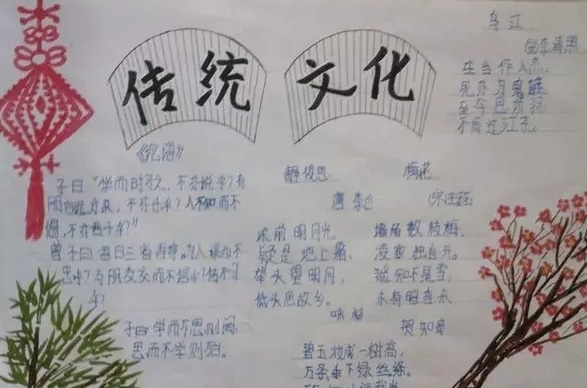 传统
文化
乌江
生当作人杰
死亦为鬼雄
至今思项羽
不肯过江东。
《论语》
子曰“学而时习之,不亦说乎?有
朋自远方来,不亦乐乎?人不知而不
愠,不亦君子乎?”
曾子曰:吾日三省吾身。为人谋而不
忠乎?与朋友交而不信乎?传不习
乎?
子曰学而不思则罔,
思而不学则殆。
静夜思
唐 李白
床前明月光,
疑是地上霜,
举头望明月,
低头思故乡。
梅花
墙角数枝梅,
凌寒独自开。
遥知不是雪,
未有暗香来
咏柳
贺知章
碧玉妆成一树高,
万条垂下绿丝绦。